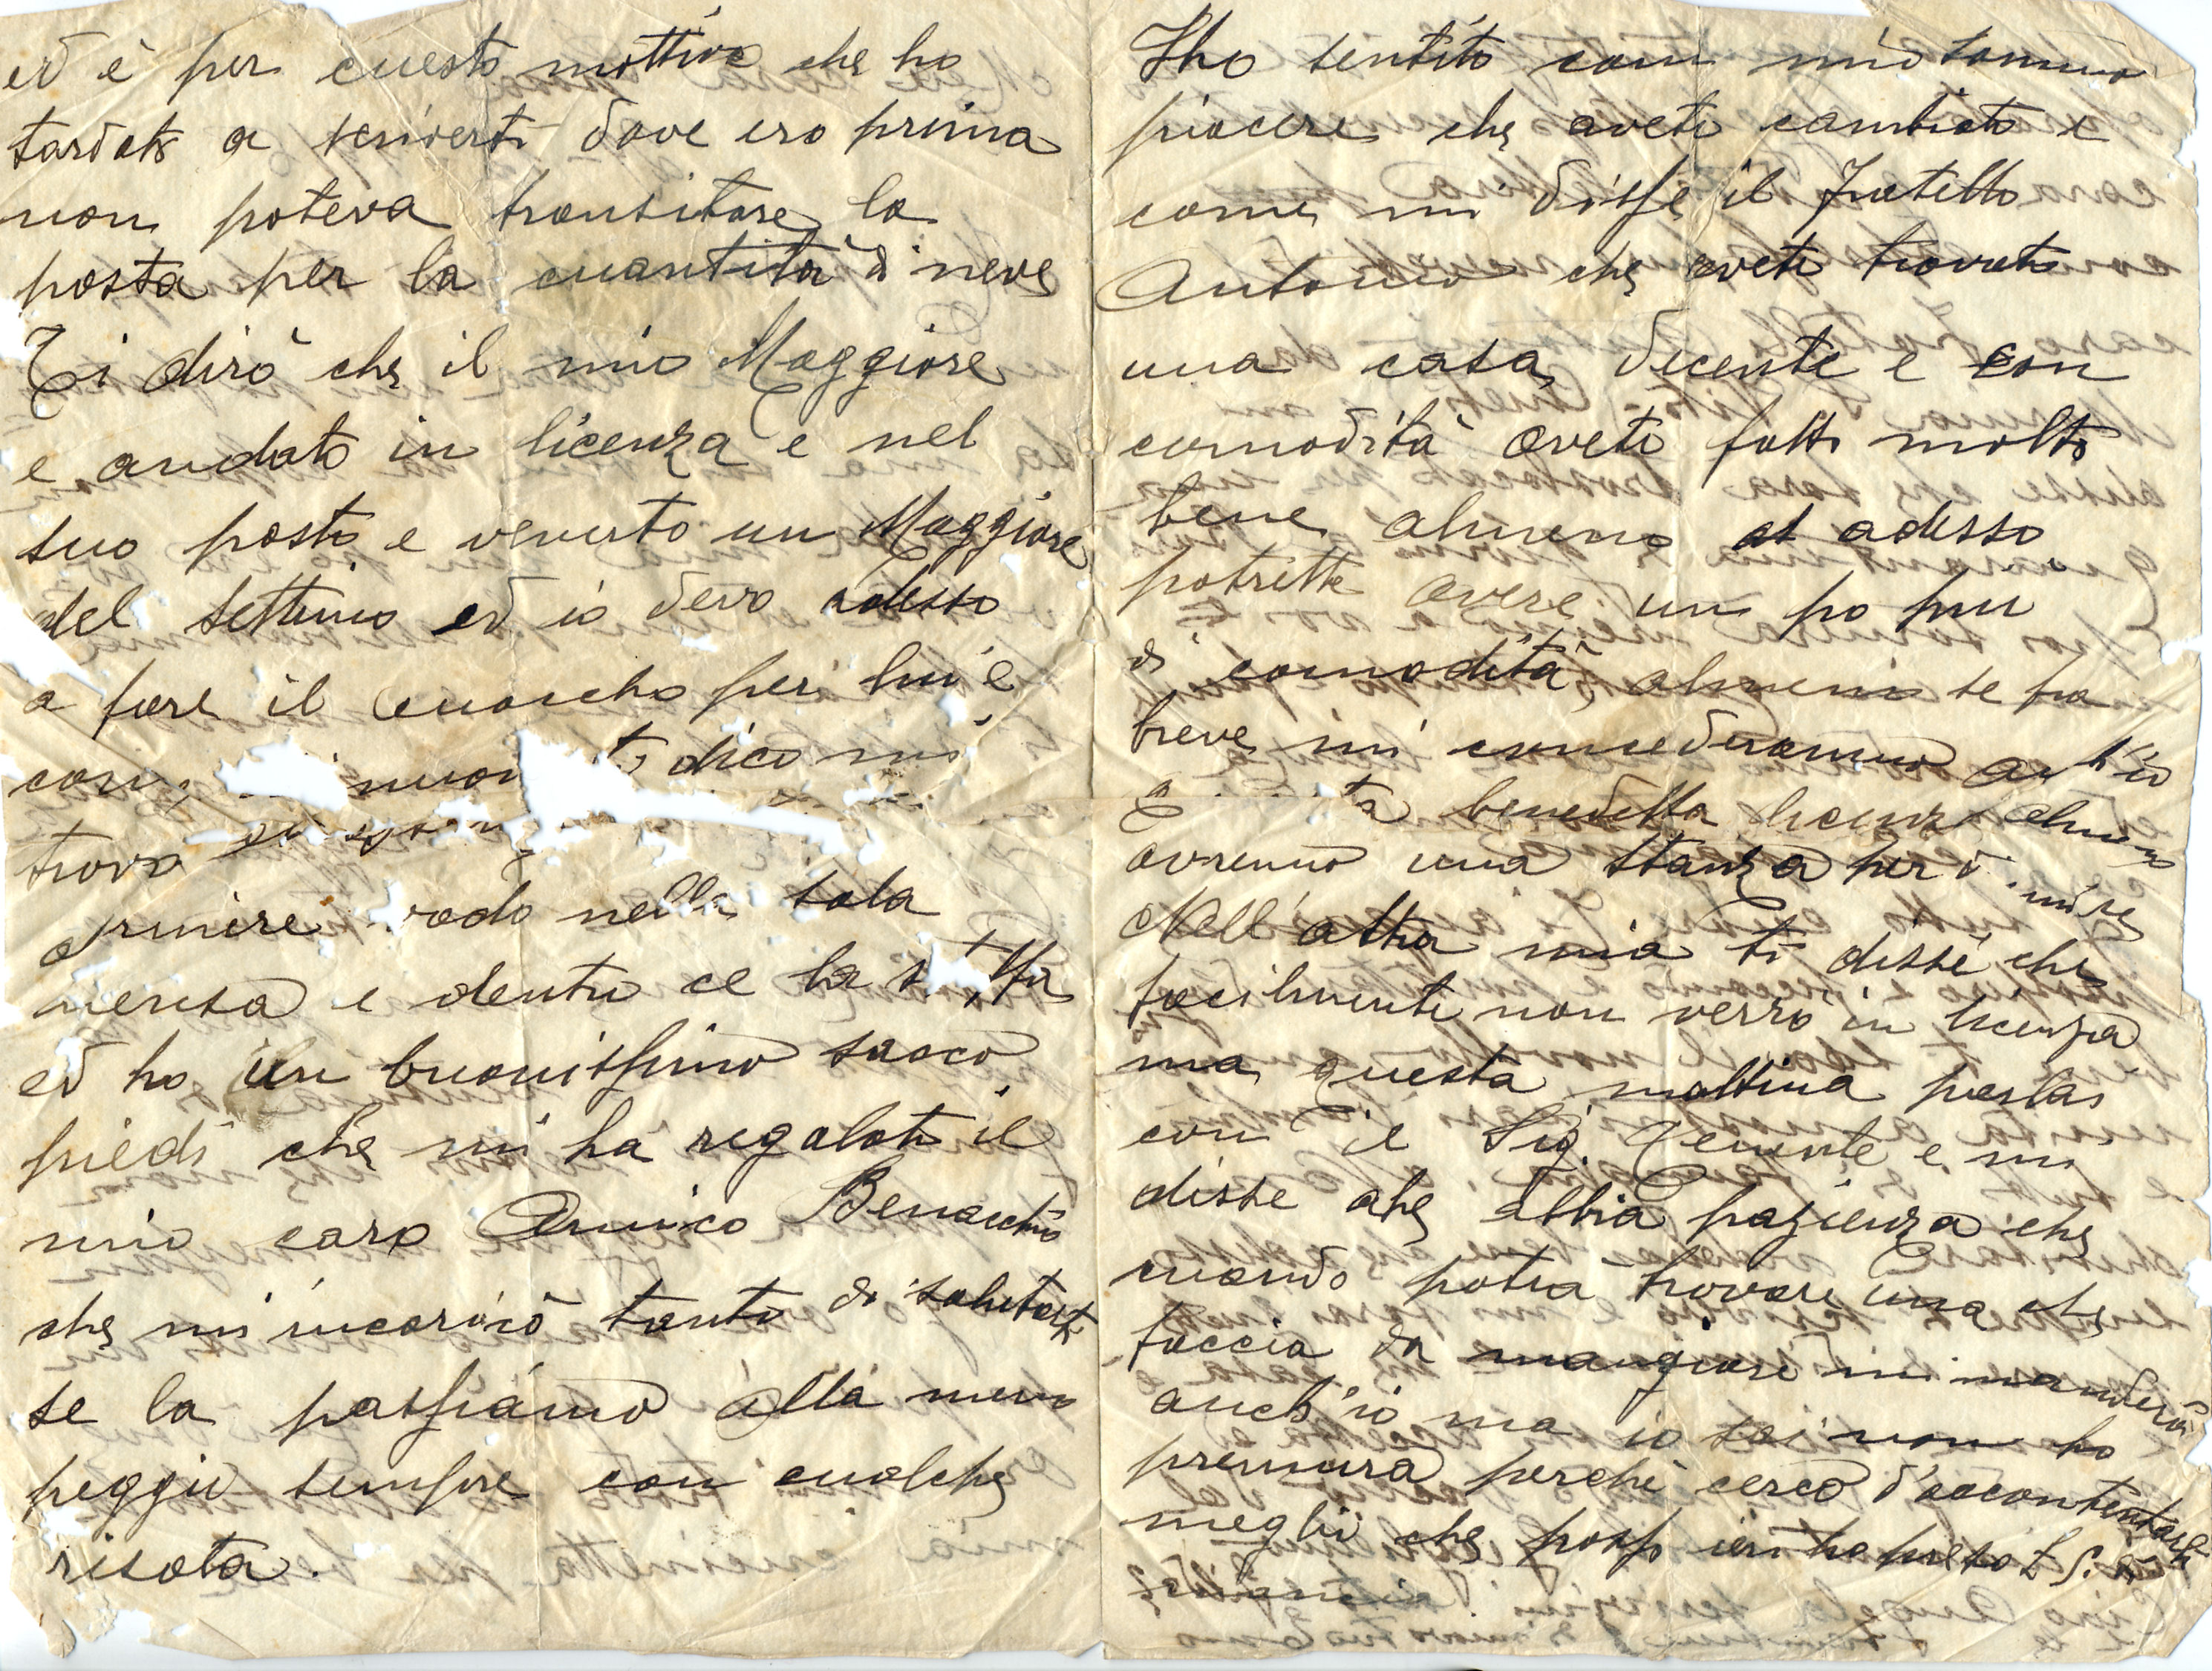 ed è per cuesto mottivo che ho
tardato a scriverti dove ero prima
non poteva transitare la
posta per la cuantità di neve
Ti dirò che il mio Maggiore
e andato in licenza e nel
suo posto e venuto un Maggiore
del settimo ed io devo adesso
a fare il cuoucho per lui e
ti dico mi
trova
nella sala
mensa e dentro ce la stuffa
ed ho un buonissimo sacco
piedi che mi ha regalato il
mio caro Amico Benacchio
che mi incaricò tanto di salutarti
se la passiamo alla meno
peggio sempre con cualche
risata.
Iho sentito com mio sommo
piacere che avete cambiato e
come mi disse il Fratello
Antonio che avete trovato
una casa decente e con
comodità avete fatto molto
bene almeno at adesso
potrette avere un po piu
di comodità, almeno se fra
breve mi concederanno anch'io
benedetta licenza almeno
avremo una stanza per
Nell'altra mia ti dissi che
facilmente non verrò in licenza
ma questa mattina parlai
con il Sig. Tenente e mi
disse che abbia pazienza che
cuando potrà trovare uno che
faccia da mangiare mi manderà
anch'io ma io sai non ho
premura perchè cerco d'accontentarli
meglio che posso ieri ho preso L 5. di
mancia.